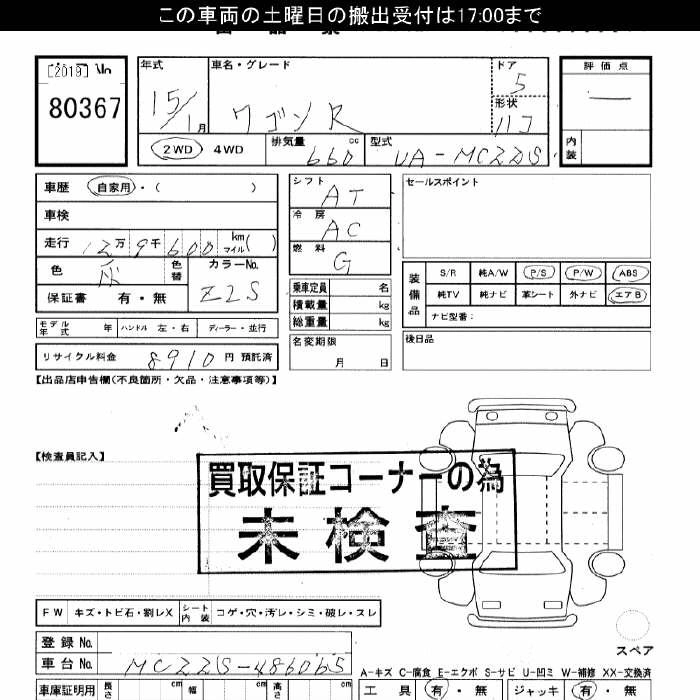 この車両の土曜日の搬出受付は17:00まで
[2019] No
80367
年式
15/1月
車名・グレード
ワゴンR
ドア
5
形状
ハコ
評価点
—
内装
2WD 4WD
排気量
660 cc
型式
UA-MCZZS
車歴 自家用・( )
車検
走行 12万9千600 km マイル( )
色 灰 色替
カラーNo.
Z2S
保証書 有・無
モデル年式 年 ハンドル 左・右 ディーラー・並行
リサイクル料金 8910 円 預託済
シフト
AT
冷房
AC
燃料
G
乗車定員 名
積載量 kg
総重量 kg
名変期限
月 日
セールスポイント
装備品
S/R 純A/W P/S P/W ABS
純TV 純ナビ 革シート 外ナビ エアB
ナビ型番:
後日品
【出品店申告欄(不良箇所・欠品・注意事項等)】
【検査員記入】
買取保証コーナーの為
未検査
FW キズ・トビ石・割レX シート内装 コゲ・穴・汚レ・シミ・破レ・スレ
登録 No.
車台 No. MCZZS-486065
スペア
A-キズ C-腐食 E-エクボ S-サビ U-凹ミ W-補修 XX-交換済
車庫証明用 長さ cm 幅 cm 高さ cm
工具 有・無 ジャッキ 有・無